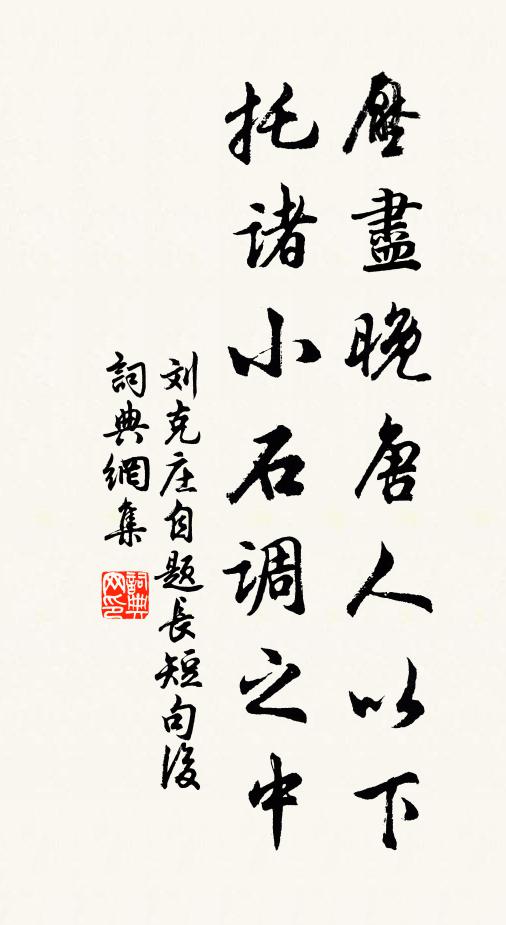 壓盡晚唐人以下
托诸小石调之中
刘克庄自题長短句後
詞典網集
詞典网印